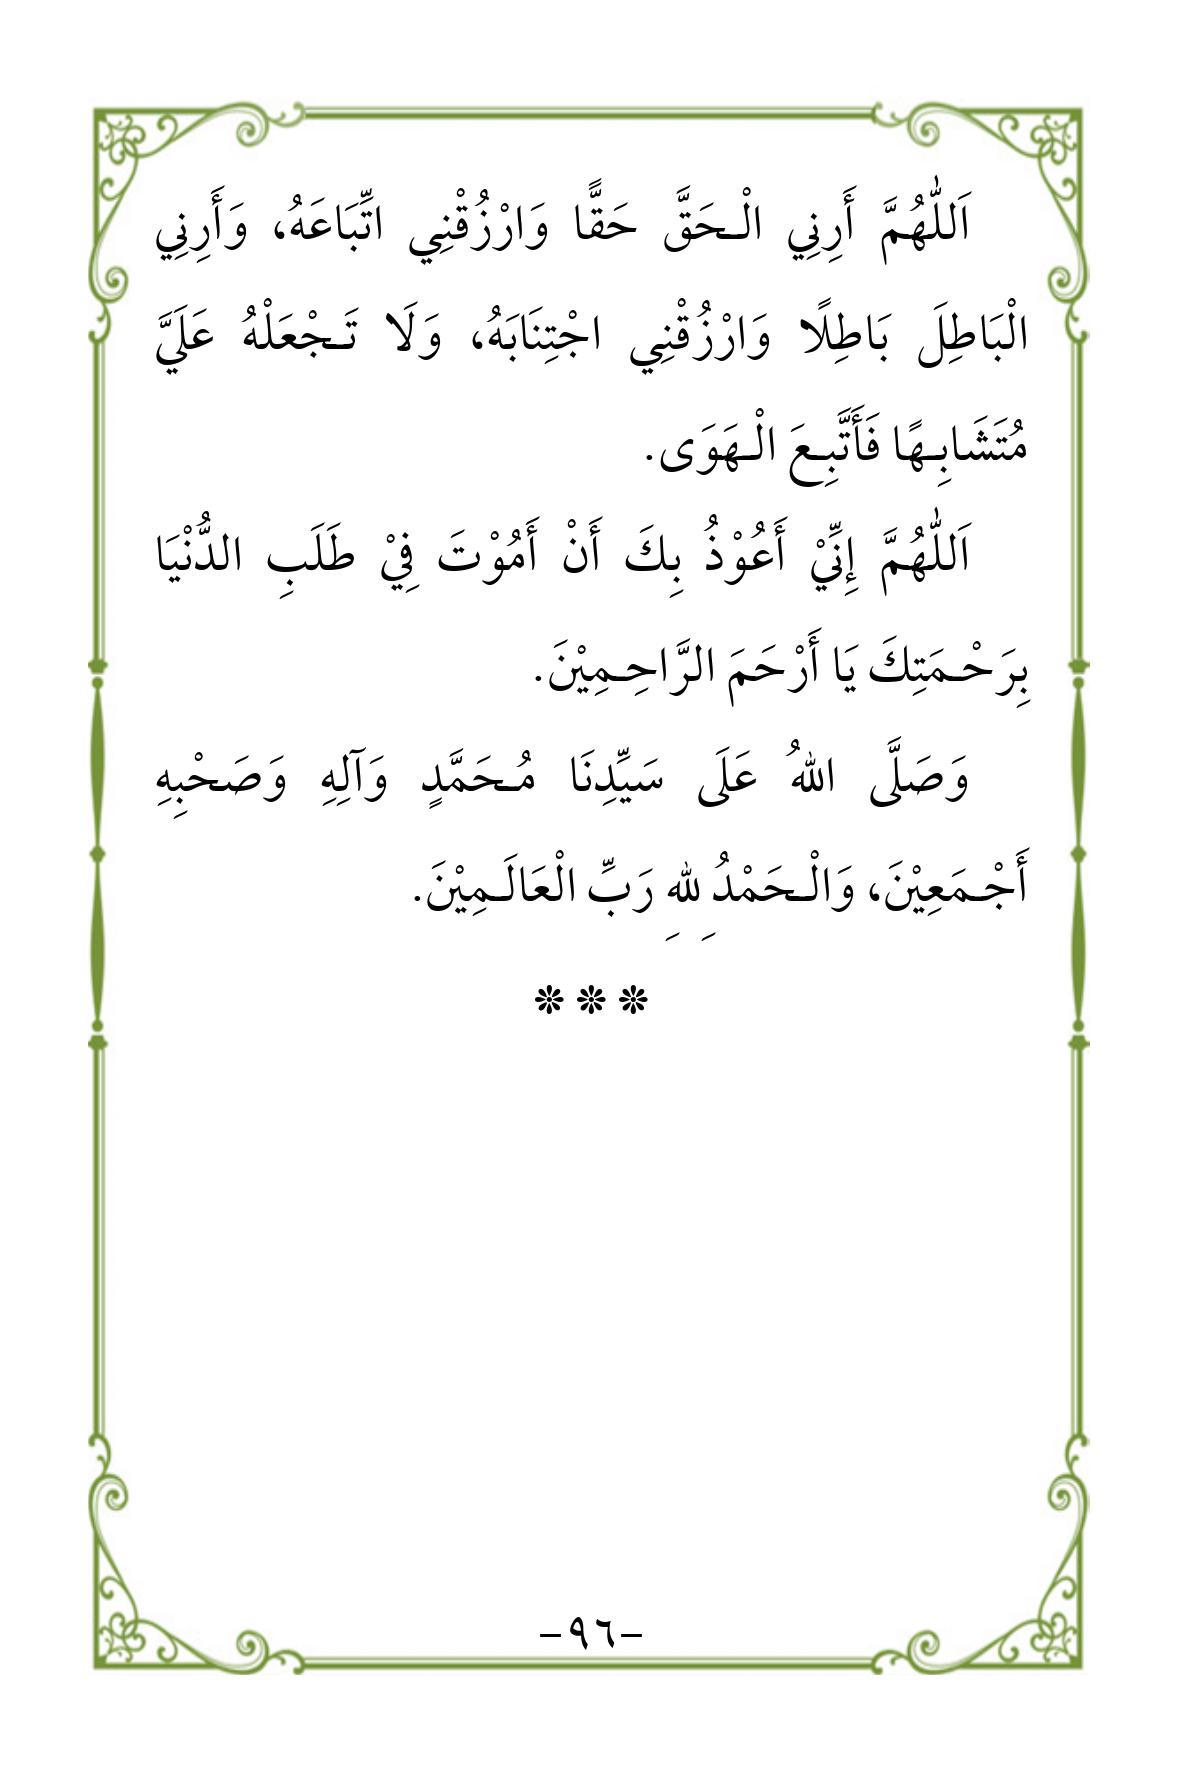 اَللّٰهُمَّ أَرِنِي الْـحَقَّ حَقًّا وَارْزُقْنِي اتِّبَاعَهُ، وَأَرِنِي
الْبَاطِلَ بَاطِلًا وَارْزُقْنِي اجْتِنَابَهُ، وَلَا تَـجْعَلْهُ عَلَيَّ
مُتَشَابِـهًا فَأَتَّبِـعَ الْـهَوَى.
اَللّٰهُمَّ إِنِّيْ أَعُوْذُ بِكَ أَنْ أَمُوْتَ فِيْ طَلَبِ الدُّنْيَا
بِرَحْـمَتِكَ يَا أَرْحَمَ الرَّاحِـمِيْنَ.
وَصَلَّى اللهُ عَلَى سَيِّدِنَا مُـحَمَّدٍ وَآلِهِ وَصَحْبِهِ
أَجْـمَعِيْنَ، وَالْـحَمْدُ لِلهِ رَبِّ الْعَالَـمِيْنَ.
❊ ❊ ❊
-٩٦-